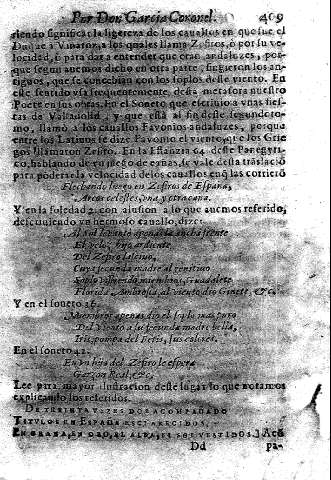 Por Don Garcia Coronel. 409
riendo significar la ligereza de los cauallos en que fue el
Duque a Vinaròz, a los quales llama Zefiros, ò por su ve-
locidad, ò para dar a entender que eran andaluzes, por-
que segun auemos dicho en otra parte, fingieron los an-
tiguos, que se concebian con los soplos deste viento. En
este sentido vsa frequentemente desta metafora nuestro
Poeta en sus obras. En el Soneto que escriuio a vnas fies-
tas de Valladolid, y que està al fin deste segundo to-
mo, llamò a los cauallos Fauonios andaluzes, porque
entre los Latinos se dize Fauonio el viento, que los Grie-
gos llamaron Zefiro. En la Estanzia 64. deste Panegyri-
co, hablando de vn juego de cañas, se vale desta traslaciõ
para poderar la velocidad de los cauallos enq̃ las corrierõ
Flechando luego en Zefiros de España,
Arcos celestes, vna y otra cana.
Y en la soledad 2. con alusion a lo que auemos referido,
descriuiendo vn hermoso cauallo, dize:
Al Sol leuantò apenas la ancha frente
El veloz hijo ardiente
Del Zefiro lasciuo,
Cuya fecunda madre al genitiuo
Soplo vistiendo miembros, Guadalete
Florida Ambrosia al viento diò Ginete, &c.
Y en el soneto 26.
Miembros apenas diò el soplo mas puro
Del Viento a su fecunda madre bella,
Iris, pompa del Betis, sus colores.
En el soneto 42.
En vn hijo del Zefiro le espera
Garzon Real, &c.
Lee para mayor ilustracion deste lugar lo que notamos
explicando los referidos.
DE TREINTA VEZES DOS ACOMPAÑADO
TITVLOS EN ESPAÑA ESCLARECIDOS,
EN GRANA, EN ORO, EL ALBA, EL SOL VESTIDOS. ] Aco
Dd pa-